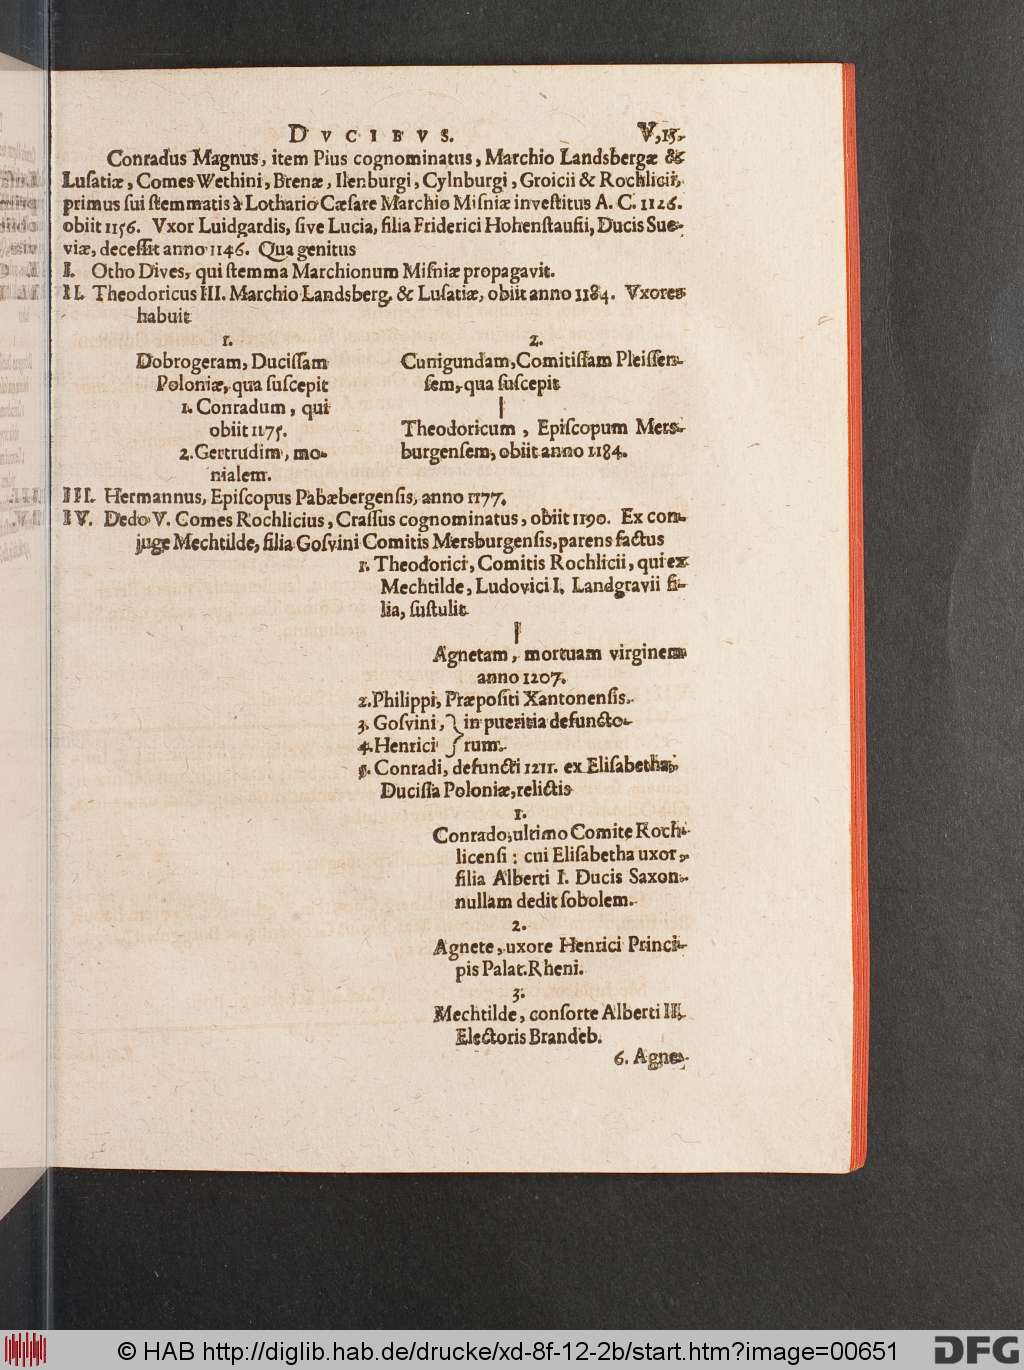 DVCIBVS. V,15.
Conradus Magnus, item Pius cognominatus, Marchio Landsbergæ &
Luſatiæ, Comes Wethini, Brenæ, Ilenburgi, Cylnburgi, Groicii & Rochlicii,
primus ſui ſtemmatis à Lothario Cæſare Marchio Miſniæ inveſtitus A. C. 1126.
obiit 1156. Vxor Luidgardis, ſive Lucia, filia Friderici Hohenſtaufii, Ducis Sue-
viæ, deceſſit anno 1146. Qua genitus
I. Otho Dives, qui ſtemma Marchionum Miſniæ propagavit.
II. Theodoricus III. Marchio Landsberg. & Luſatiæ, obiit anno 1184. Vxores
habuit
1.
Dobrogeram, Duciſſam
Poloniæ, qua ſuſcepit
1. Conradum, qui
obiit 1175.
2. Gertrudim, mo-
nialem.
2.
Cunigundam, Comitiſſam Pleiſſen-
ſem, qua ſuſcepit
Theodoricum, Epiſcopum Mers-
burgenſem, obiit anno 1184.
III. Hermannus, Epiſcopus Pabæbergenſis, anno 1177.
IV. Dedo V. Comes Rochlicius, Craſſus cognominatus, obiit 1190. Ex con-
juge Mechtilde, filia Goſvini Comitis Mersburgenſis, parens factus
1. Theodorici, Comitis Rochlicii, qui ex
Mechtilde, Ludovici I. Landgravii fi-
lia, ſuſtulit
Agnetam, mortuam virginem
anno 1207.
2. Philippi, Præpoſiti Xantonenſis.
3. Goſvini, } in pueritia defuncto-
4. Henrici } rum.
5. Conradi, defuncti 1211. ex Eliſabetha,
Duciſſa Poloniæ, relictis
1.
Conrado, ultimo Comite Roch-
licenſi: cui Eliſabetha uxor,
filia Alberti I. Ducis Saxon.
nullam dedit ſobolem.
2.
Agnete, uxore Henrici Princi-
pis Palat. Rheni.
3.
Mechtilde, conſorte Alberti II.
Electoris Brandeb.
6. Agne-
© HAB http://diglib.hab.de/drucke/xd-8f-12-2b/start.htm?image=00651
DFG